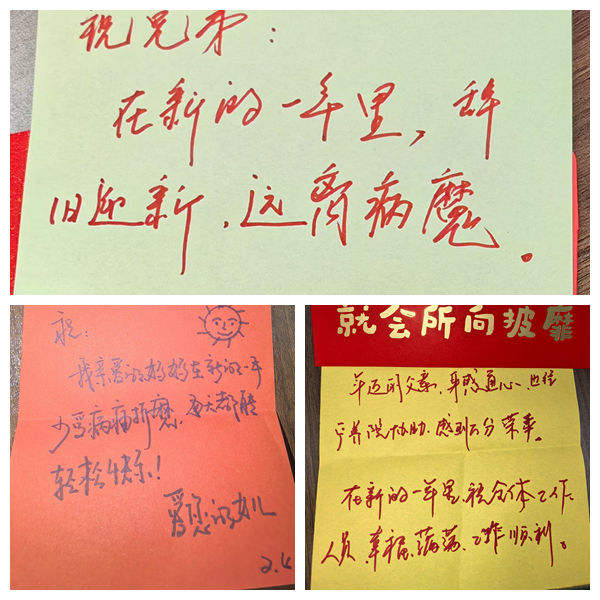 祝兄弟：
在新的一年里，辞
旧迎新，远离病魔。
祝：
我亲爱的妈妈在新的一年
少受病痛折磨，每天都能
轻松快乐！
爱您的女儿
就会所向披靡
年迈的父亲，身感通心、也住
养院协助，感到万分荣幸。
在新的一年里，祝全体工作
人员，幸福满满，工作顺利。